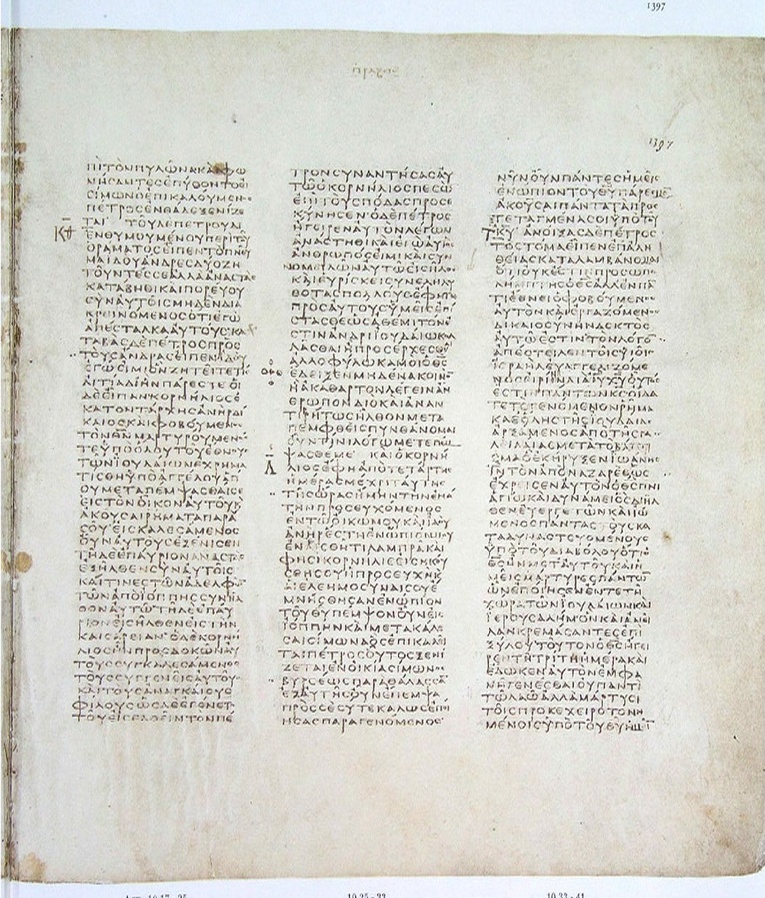 1397
ΠΡΑΞΕΙΣ
1397
ΠΙΤΟΝΠΥΛΩΝΑΚΑΙΦΩ
ΝΗΣΑΝΤΕΣΕΠΥΘΟΝΤΟΕΙ
ΣΙΜΩΝΟΕΠΙΚΑΛΟΥΜΕΝΟΣ
ΠΕΤΡΟΣΕΝΘΑΔΕΞΕΝΙΖΕ
ΤΑΙ ΤΟΥΔΕΠΕΤΡΟΥΔΙ
ΕΝΘΥΜΟΥΜΕΝΟΥΠΕΡΙΤΟΥ
ΟΡΑΜΑΤΟΣΕΙΠΕΝΤΟΠΝΑ
ΙΔΟΥΑΝΔΡΕΣΔΥΟΖΗ
ΤΟΥΝΤΕΣΣΕΑΛΛΑΑΝΑΣΤΑΣ
ΚΑΤΑΒΗΘΙΚΑΙΠΟΡΕΥΟΥ
ΣΥΝΑΥΤΟΙΣΜΗΔΕΝΔΙΑ
ΚΡΕΙΝΟΜΕΝΟΣΟΤΙΕΓΩ
ΑΠΕΣΤΑΛΚΑΑΥΤΟΥΣΚΑ
ΤΑΒΑΣΔΕΠΕΤΡΟΣΠΡΟΣ
ΤΟΥΣΑΝΔΡΑΣΕΙΠΕΝΙΔΟΥ
ΕΓΩΕΙΜΙΟΝΖΗΤΕΙΤΕΤΙΣΗ
ΑΙΤΙΑΔΙΗΝΠΑΡΕΣΤΕΟΙ
ΔΕΕΙΠΑΝΚΟΡΝΗΛΙΟΣΕ
ΚΑΤΟΝΤΑΡΧΗΣΑΝΗΡΔΙ
ΚΑΙΟΣΚΑΙΦΟΒΟΥΜΕΝΟΣ
ΤΟΝΘΝΜΑΡΤΥΡΟΥΜΕΝΟΣ
ΤΕΥΠΟΟΛΟΥΤΟΥΕΘΝΟΥΣ
ΤΩΝΙΟΥΔΑΙΩΝΕΧΡΗΜΑ
ΤΙΣΘΗΥΠΟΑΓΓΕΛΟΥΑΓΙ
ΟΥΜΕΤΑΠΕΜΨΑΣΘΑΙΣΕ
ΕΙΣΤΟΝΟΙΚΟΝΑΥΤΟΥΚΑΙ
ΑΚΟΥΣΑΙΡΗΜΑΤΑΠΑΡΑ
ΣΟΥΕΙΣΚΑΛΕΣΑΜΕΝΟΣ
ΟΥΝΑΥΤΟΥΣΕΞΕΝΙΣΕΝ
ΤΗΔΕΕΠΑΥΡΙΟΝΑΝΑΣΤΑΣ
ΕΞΗΛΘΕΝΣΥΝΑΥΤΟΙΣ
ΚΑΙΤΙΝΕΣΤΩΝΑΔΕΛΦΩΝ
ΤΩΝΑΠΟΙΟΠΠΗΣΣΥΝΗΛ
ΘΟΝΑΥΤΩΤΗΔΕΕΠΑΥ
ΡΙΟΝΕΙΣΗΛΘΕΝΕΙΣΤΗΝ
ΚΑΙΣΑΡΕΙΑΝΟΔΕΚΟΡΝΗ
ΛΙΟΣΗΝΠΡΟΣΔΟΚΩΝΑΥ
ΤΟΥΣΣΥΓΚΑΛΕΣΑΜΕΝΟΣ
ΤΟΥΣΣΥΓΓΕΝΕΙΣΑΥΤΟΥ
ΚΑΙΤΟΥΣΑΝΑΓΚΑΙΟΥΣ
ΦΙΛΟΥΣΩΣΔΕΕΓΕΝΕΤΟ
ΤΟΥΕΙΣΕΛΘΕΙΝΤΟΝΠΕ
ΤΡΟΝΣΥΝΑΝΤΗΣΑΣΑΥ
ΤΩΟΚΟΡΝΗΛΙΟΣΠΕΣΩ
ΕΠΙΤΟΥΣΠΟΔΑΣΠΡΟΣΕ
ΚΥΝΗΣΕΝΟΔΕΠΕΤΡΟΣ
ΗΓΕΙΡΕΝΑΥΤΟΝΛΕΓΩΝ
ΑΝΑΣΤΗΘΙΚΑΙΕΓΩΑΥΤΟΣ
ΑΝΘΡΩΠΟΣΕΙΜΙΚΑΙΣΥΝ
ΟΜΕΙΛΩΝΑΥΤΩΕΙΣΗΛΘΕ
ΚΑΙΕΥΡΙΣΚΕΙΣΥΝΕΛΗΛΥ
ΘΟΤΑΣΠΟΛΛΟΥΣΕΦΗΤΕ
ΠΡΟΣΑΥΤΟΥΣΥΜΕΙΣΕΠΙ
ΣΤΑΣΘΕΩΣΑΘΕΜΙΤΟΝΕ
ΣΤΙΝΑΝΔΡΙΙΟΥΔΑΙΩΚΟΛ
ΛΑΣΘΑΙΗΠΡΟΣΕΡΧΕΣΘΑΙ
ΑΛΛΟΦΥΛΩΚΑΜΟΙΟΘΣ
ΕΔΕΙΞΕΝΜΗΔΕΝΑΚΟΙΝΟΝ
ΗΑΚΑΘΑΡΤΟΝΛΕΓΕΙΝΑΝ
ΘΡΩΠΟΝΔΙΟΚΑΙΑΝΑΝ
ΤΙΡΗΤΩΣΗΛΘΟΝΜΕΤΑ
ΠΕΜΦΘΕΙΣΠΥΝΘΑΝΟΜΑΙ
ΟΥΝΤΙΝΙΛΟΓΩΜΕΤΕΠΕΜ
ΨΑΣΘΕΜΕ ΚΑΙΟΚΟΡΝΗ
ΛΙΟΣΕΦΗΑΠΟΤΕΤΑΡΤΗΣ
ΗΜΕΡΑΣΜΕΧΡΙΤΑΥΤΗΣ
ΤΗΣΩΡΑΣΗΜΗΝΤΗΝΕΝΑ
ΤΗΝΠΡΟΣΕΥΧΟΜΕΝΟΣ
ΕΝΤΩΟΙΚΩΜΟΥΚΑΙΙΔΟΥ
ΑΝΗΡΕΣΤΗΕΝΩΠΙΟΝΜΟΥ
ΕΝΕΣΘΗΤΙΛΑΜΠΡΑΚΑΙ
ΦΗΣΙΚΟΡΝΗΛΙΕΕΙΣΗΚΟΥ
ΣΘΗΣΟΥΗΠΡΟΣΕΥΧΗΚΑΙ
ΑΙΕΛΕΗΜΟΣΥΝΑΙΣΟΥΕ
ΜΝΗΣΘΗΣΑΝΕΝΩΠΙΟΝ
ΤΟΥΘΥΠΕΜΨΟΝΟΥΝΕΙΣ
ΙΟΠΠΗΝΚΑΙΜΕΤΑΚΑΛΕ
ΣΑΙΣΙΜΩΝΑΟΣΕΠΙΚΑΛΕΙ
ΤΑΙΠΕΤΡΟΣΟΥΤΟΣΞΕΝΙ
ΖΕΤΑΙΕΝΟΙΚΙΑΣΙΜΩΝΟΣ
ΒΥΡΣΕΩΣΠΑΡΑΘΑΛΑΣΣΑ
ΕΞΑΥΤΗΣΟΥΝΕΠΕΜΨΑ
ΠΡΟΣΣΕΣΥΤΕΚΑΛΩΣΕΠΟΙ
ΗΣΑΣΠΑΡΑΓΕΝΟΜΕΝΟΣ
ΝΥΝΟΥΝΠΑΝΤΕΣΗΜΕΙΣ
ΕΝΩΠΙΟΝΤΟΥΘΥΠΑΡΕΣΜΕ
ΑΚΟΥΣΑΙΠΑΝΤΑΤΑΠΡΟΣ
ΤΕΤΑΓΜΕΝΑΣΟΙΥΠΟΤΟΥ
ΚΥ ΑΝΟΙΞΑΣΔΕΠΕΤΡΟΣ
ΤΟΣΤΟΜΑΕΙΠΕΝΕΠΑΛΗ
ΘΕΙΑΣΚΑΤΑΛΑΜΒΑΝΟΜΑΙ
ΟΤΙΟΥΚΕΣΤΙΝΠΡΟΣΩΠΟ
ΛΗΜΠΤΗΣΟΘΣΑΛΛΕΝΠΑ
ΤΙΕΘΝΕΙΟΦΟΒΟΥΜΕΝΟΣ
ΑΥΤΟΝΚΑΙΕΡΓΑΖΟΜΕΝΟΣ
ΔΙΚΑΙΟΣΥΝΗΝΔΕΚΤΟΣ
ΑΥΤΩΕΣΤΙΝΤΟΝΛΟΓΟ
ΑΠΕΣΤΕΙΛΕΝΤΟΙΣΥΙΟΙΣ
ΙΣΡΑΗΛΕΥΑΓΓΕΛΙΖΟΜΕ
ΝΟΣΕΙΡΗΝΗΝΔΙΑΙΥΧΥΟΥΤΟΣ
ΕΣΤΙΝΠΑΝΤΩΝΚΣΟΙΔΑ
ΤΕΤΟΓΕΝΟΜΕΝΟΝΡΗΜΑ
ΚΑΘΟΛΗΣΤΗΣΙΟΥΔΑΙΑΣ
ΑΡΞΑΜΕΝΟΣΑΠΟΤΗΣΓΑ
ΛΕΙΛΑΙΑΣΜΕΤΑΤΟΒΑΠΤΙΣΜΑ
ΟΕΚΗΡΥΞΕΝΙΩΑΝΗΣ
ΙΝΤΟΝΑΠΟΝΑΖΑΡΕΘΩΣ
ΕΧΡΕΙΣΕΝΑΥΤΟΝΟΘΣΠΝΙ
ΑΓΙΩΚΑΙΔΥΝΑΜΕΙΟΣΔΙΗΛ
ΘΕΝΕΥΕΡΓΕΤΩΝΚΑΙΙΩ
ΜΕΝΟΣΠΑΝΤΑΣΤΟΥΣΚΑ
ΤΑΔΥΝΑΣΤΕΥΟΜΕΝΟΥΣ
ΥΠΟΤΟΥΔΙΑΒΟΛΟΥΟΤΙΟ
ΘΣΗΝΜΕΤΑΥΤΟΥΚΑΙΗ
ΜΕΙΣΜΑΡΤΥΡΕΣΠΑΝΤΩ
ΩΝΕΠΟΙΗΣΕΝΕΝΤΕΤΗ
ΧΩΡΑΤΩΝΙΟΥΔΑΙΩΝΚΑΙ
ΙΕΡΟΥΣΑΛΗΜΟΝΚΑΙΑΝΕΙ
ΛΑΝΚΡΕΜΑΣΑΝΤΕΣΕΠΙ
ΞΥΛΟΥΤΟΥΤΟΝΟΘΣΗΓΕΙ
ΡΕΝΤΗΤΡΙΤΗΗΜΕΡΑΚΑΙ
ΕΔΩΚΕΝΑΥΤΟΝΕΜΦΑ
ΝΗΓΕΝΕΣΘΑΙΟΥΠΑΝΤΙ
ΤΩΛΑΩΑΛΛΑΜΑΡΤΥΣΙ
ΤΟΙΣΠΡΟΚΕΧΕΙΡΟΤΟΝΗ
ΜΕΝΟΙΣΥΠΟΤΟΥΘΥΗΜΕΙ